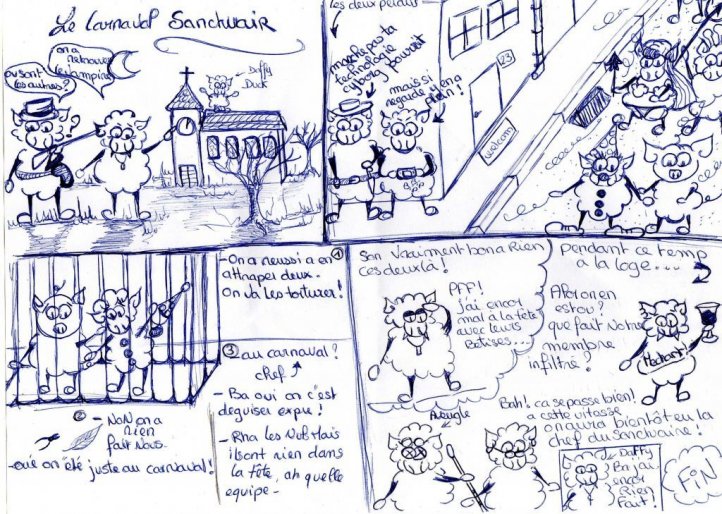 Le Carnaval Sanctuair
on a
retrouver
le vampire
ou sont
les autres?
?
Daffy
Duck
les deux
marche pas ta
technologie
cyborg pouvoit
mais si
regarde y en a
plein!
23
welcom
- On a reussi a en
attraper deux.
On va les torturer!
①
②
- NoN on a
rien
fait Nous.
- oué on été juste au carnaval!
③ au carnaval?
chef
- Ba oui on c'est
deguiser expre!
- Rha les NuB Mais
ils ont rien dans
la tête, ah quelle
equipe -
Son vraiment bon a Rien
ces deux là!
PFF!
J'ai encor
mal a la tête
avec leurs
Betises...
pendant ce temp
a la loge...
Alors on en
est ou?
que fait Notre
membre
infiltré?
Aveugle
Bah! ca se passe bien!
a cette vitesse
on aura bientôt eu la
chef du sanctuaire!
Daffy
Bn jai
encor
Rien
fait!
FiN